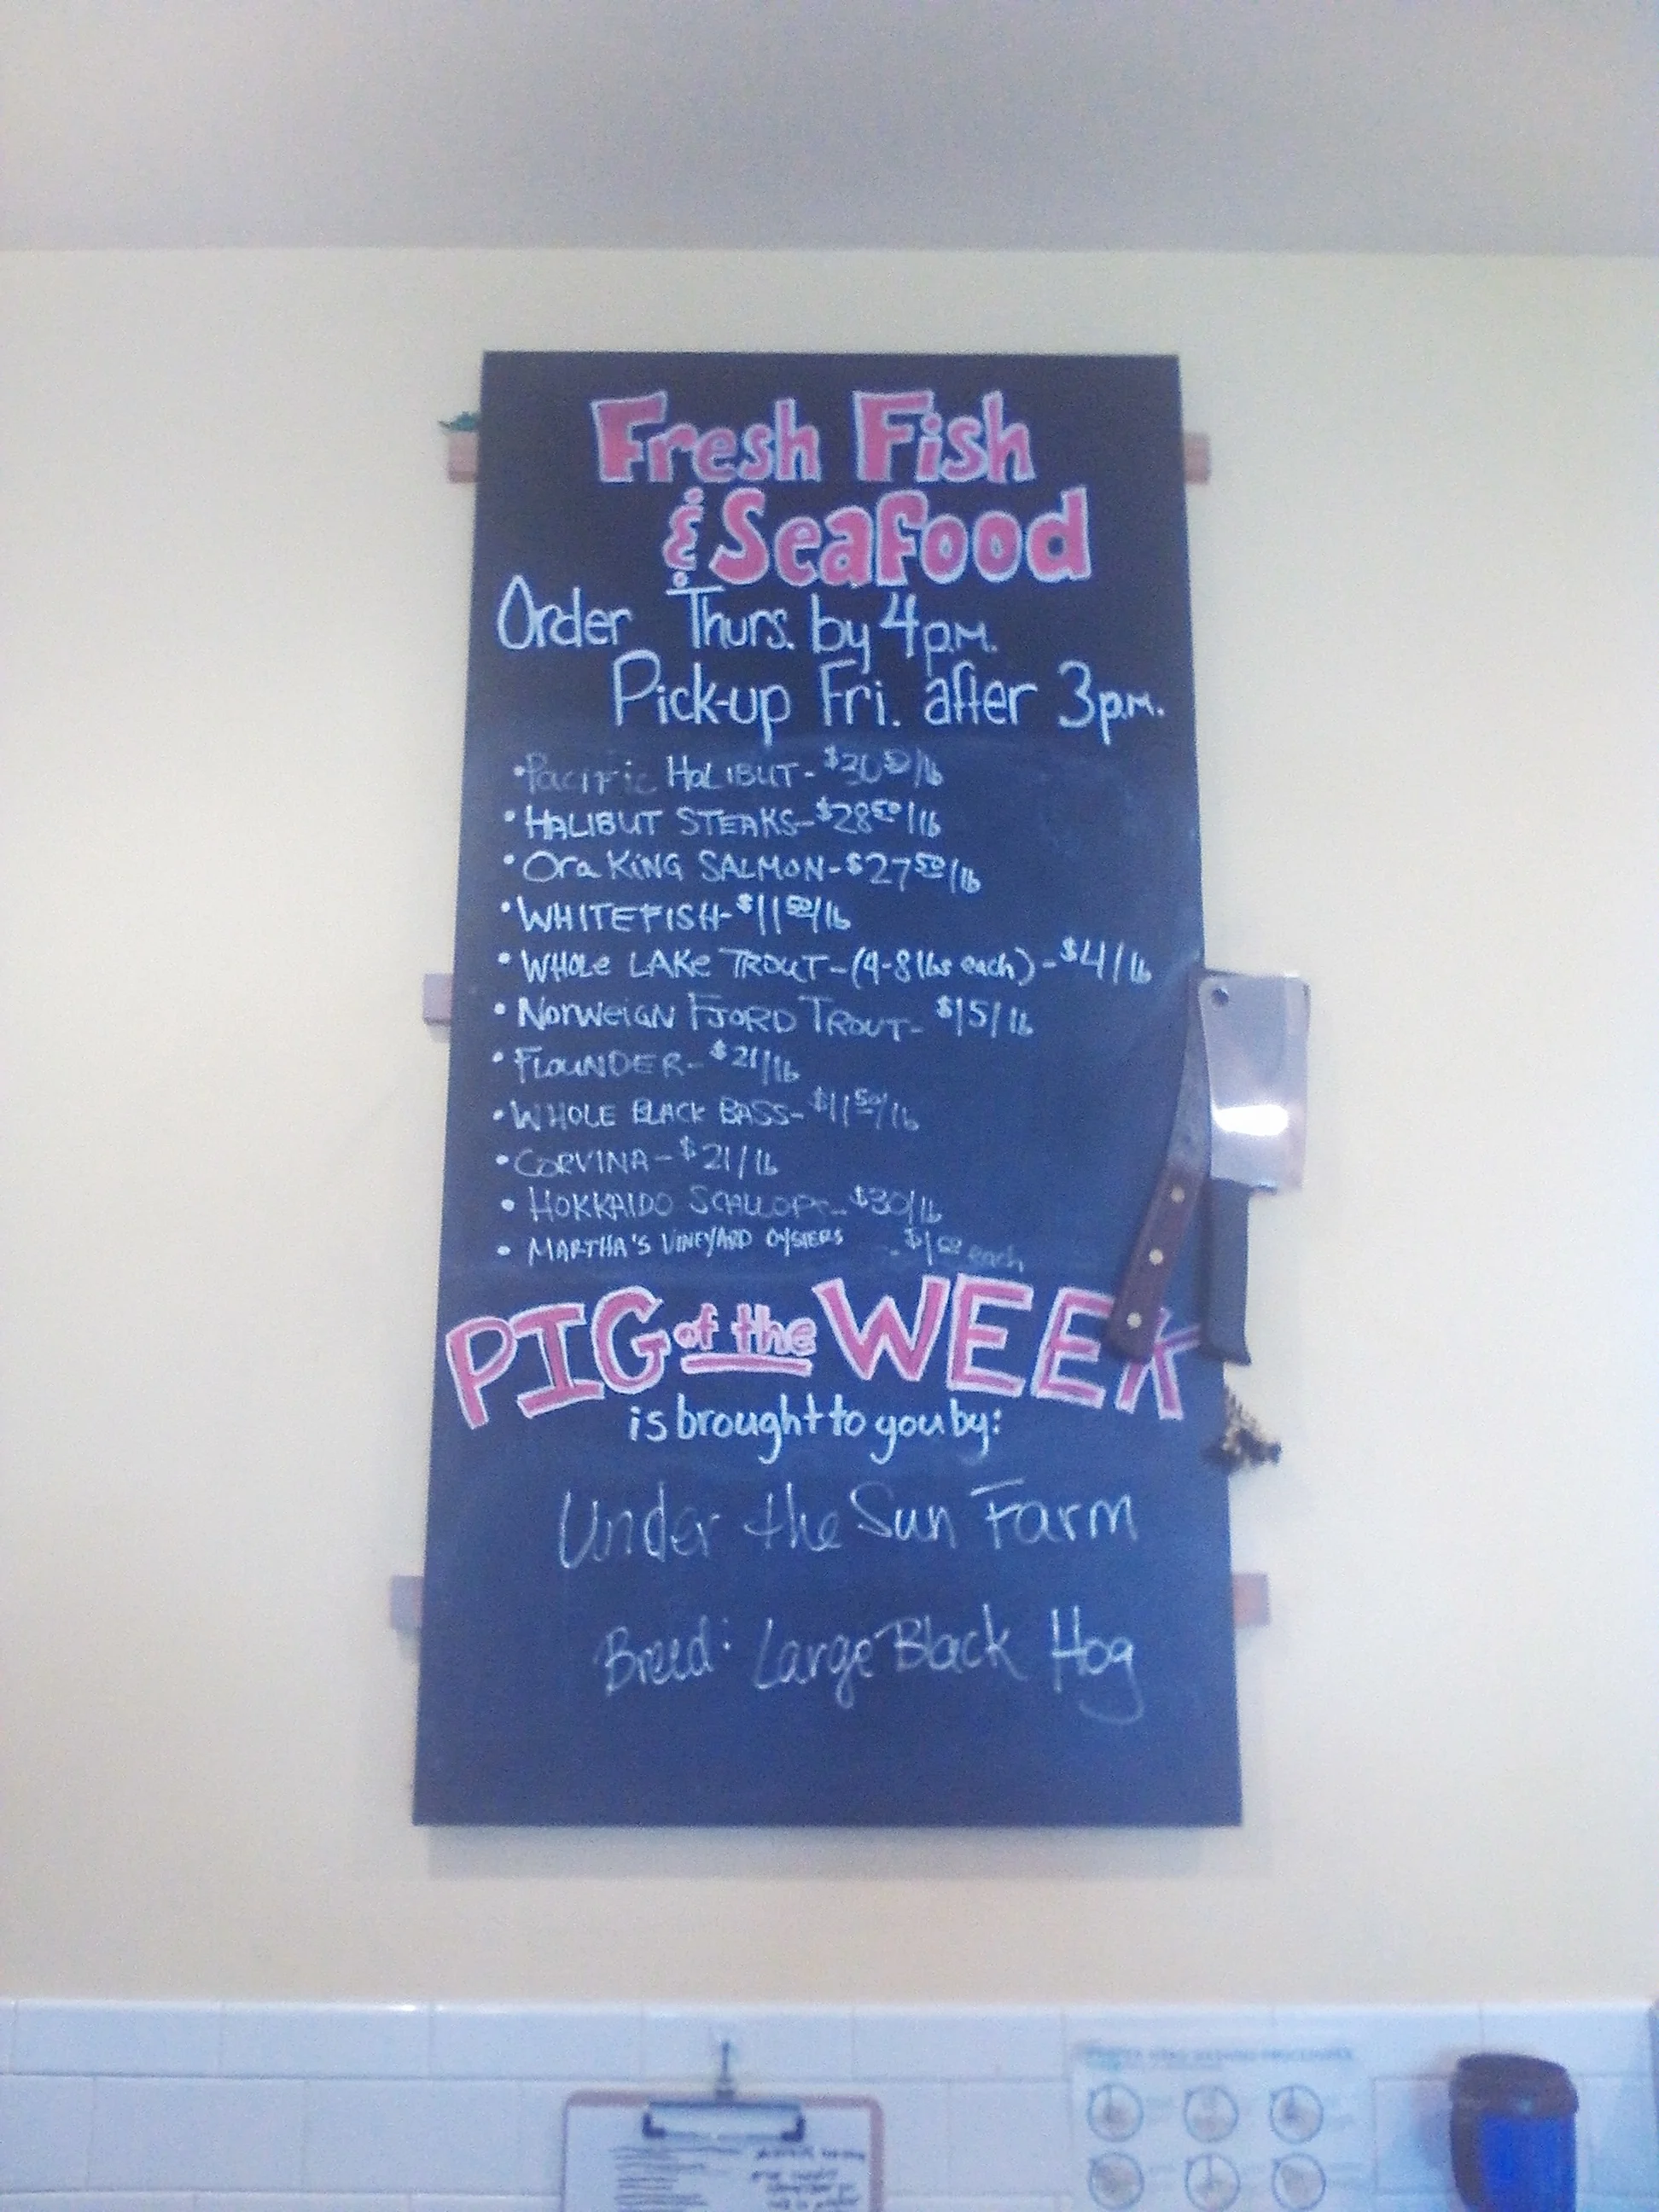 Fresh Fish
& Seafood
Order Thurs. by 4 p.m.
Pick-up Fri. after 3 p.m.
• Pacific HALIBUT - $30 50/lb
• HALIBUT STEAKS - $28 50/lb
• Ora KING SALMON - $27 50/lb
• WHITEFISH - $11 50/lb
• WHOLE LAKE TROUT - (4-8 lbs each) - $4/lb
• NORWEIGN FJORD TROUT - $15/lb
• FLOUNDER - $21/lb
• WHOLE BLACK BASS - $11 50/lb
• CORVINA - $21/lb
• HOKKAIDO SCALLOPS - $30/lb
• MARTHA'S VINEYARD OYSTERS - $1 50 each
PIG of the WEEK
is brought to you by:
Under the Sun Farm
Breed: Large Black Hog